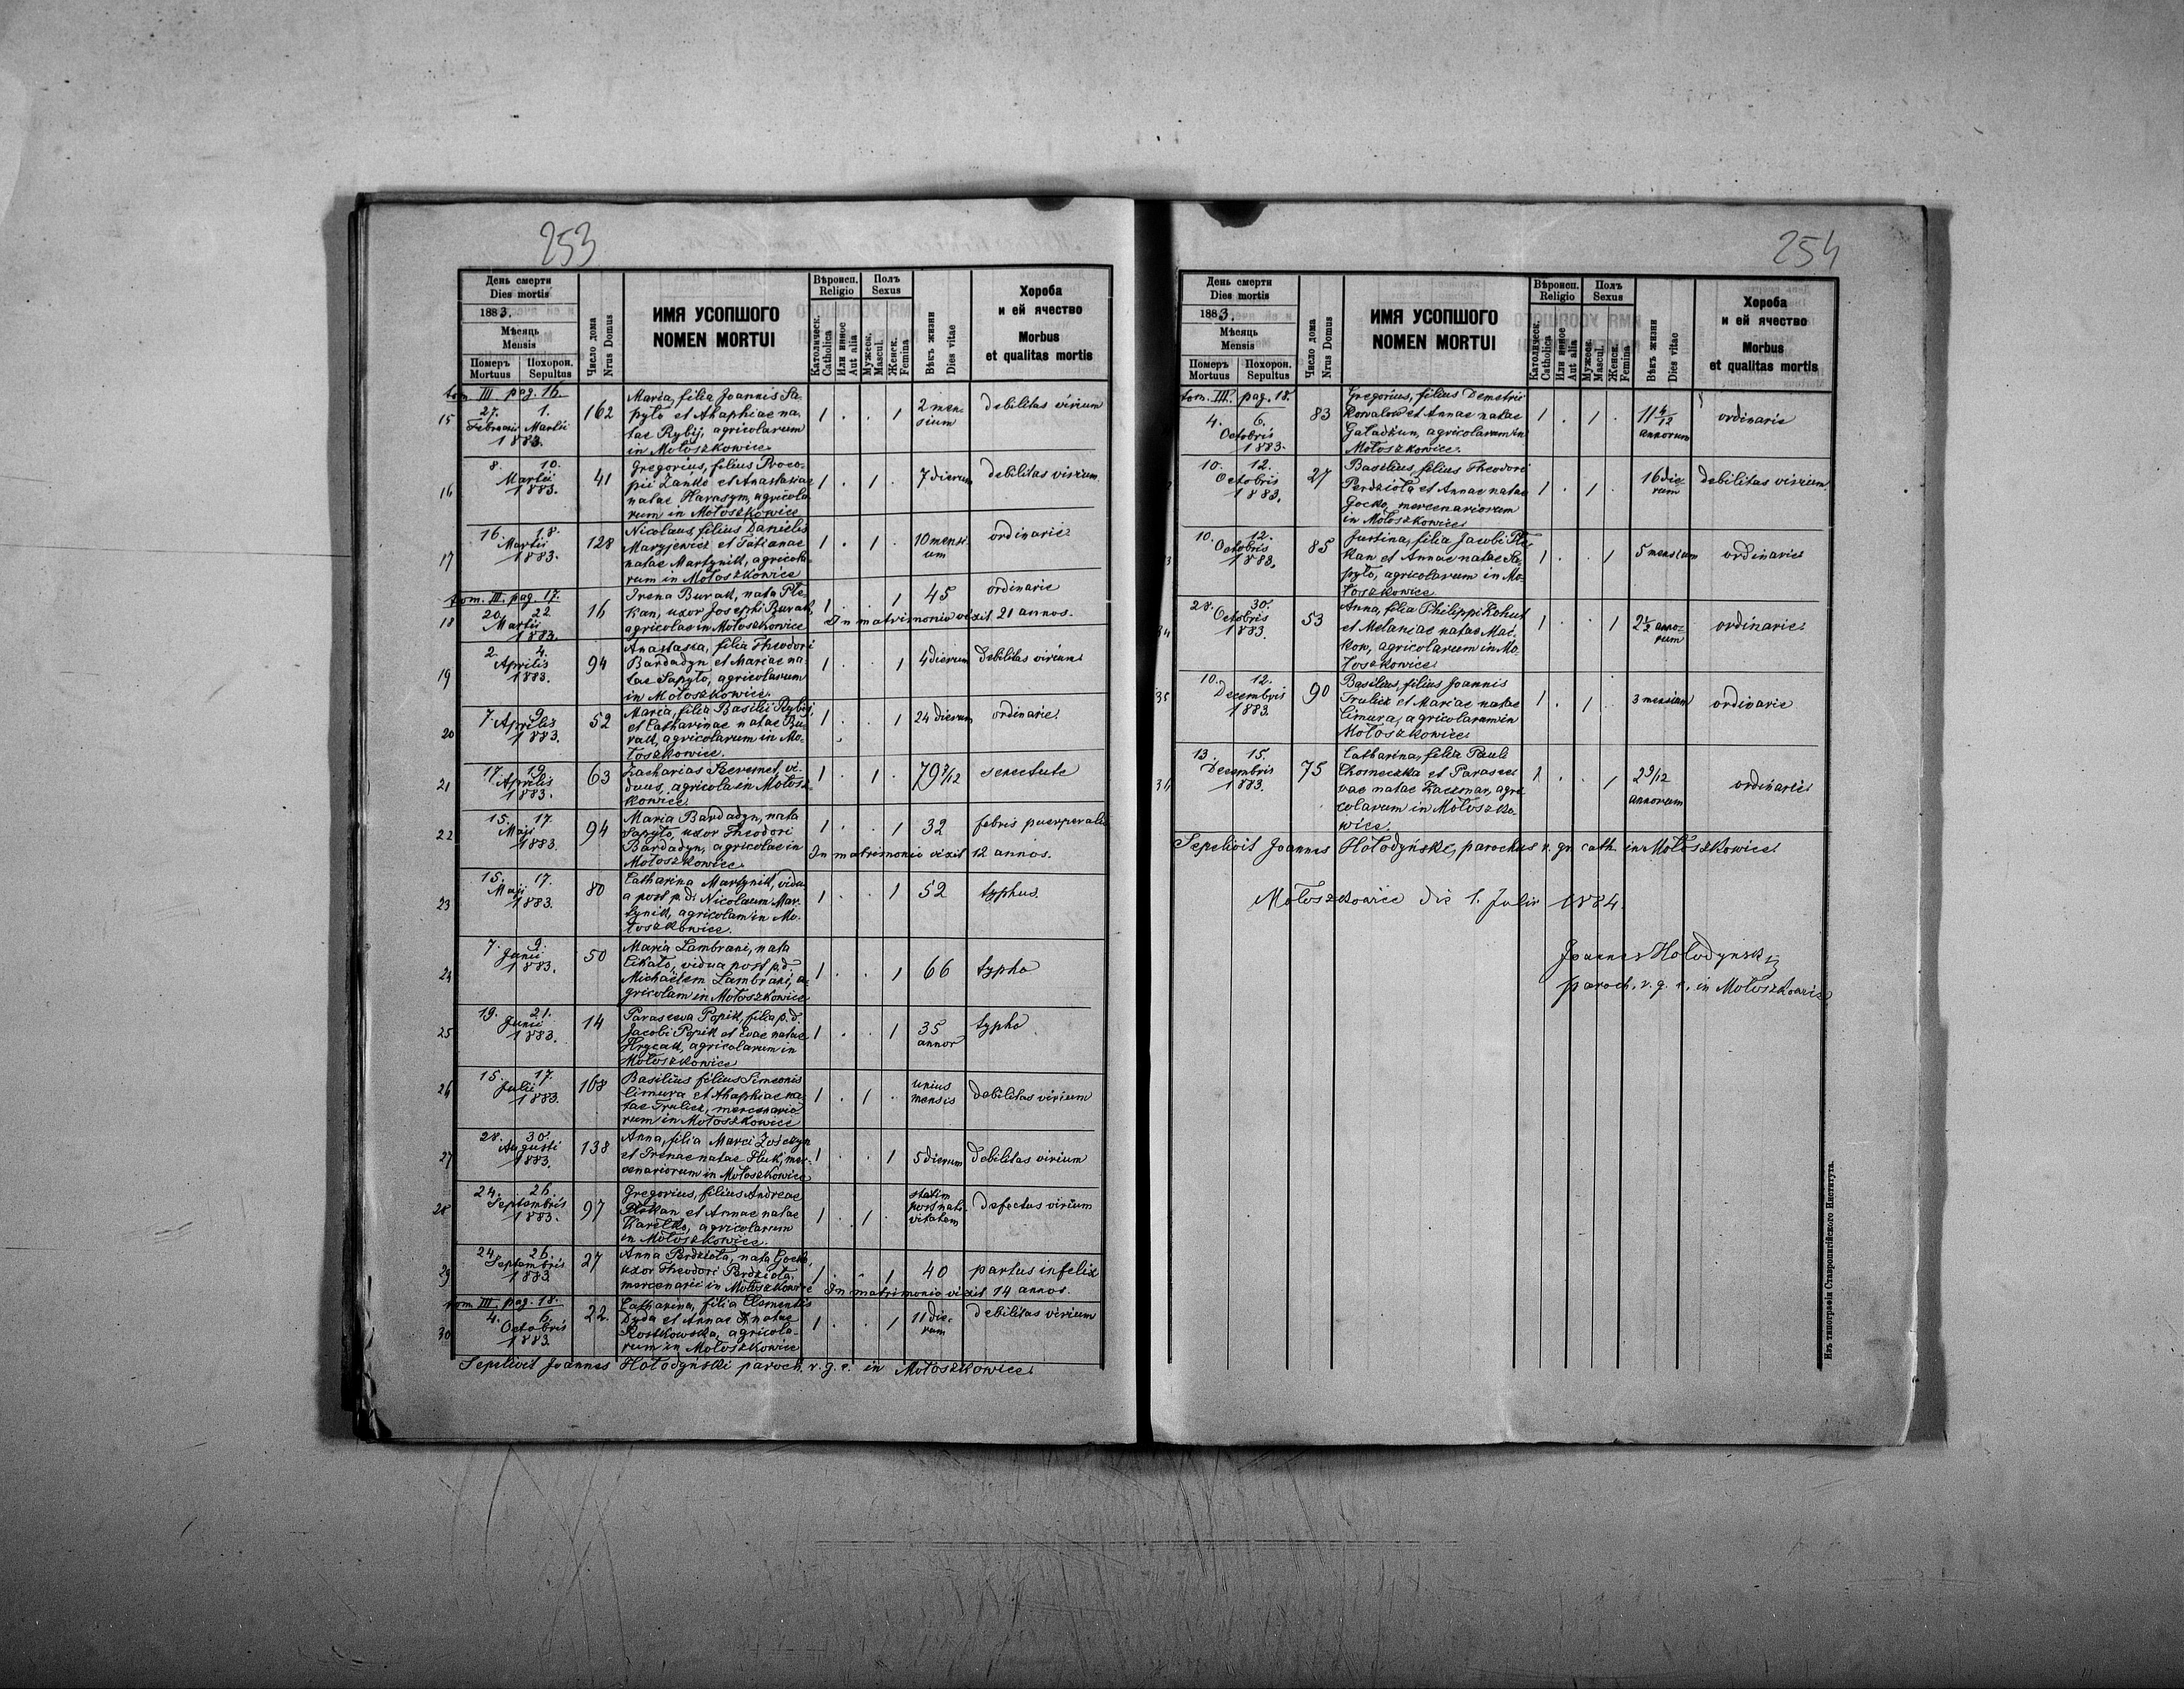 253
День смерти
Dies mortis
1883.
Мѣсяць
Mensis
Померъ
Mortuus
Похорон.
Sepultus
Число дома
Nrus Domus
ИМЯ УСОПШОГО
NOMEN MORTUI
Вѣроисп.
Religio
Католическ.
Catholica
Или инное
Aut alia
Полъ
Sexus
Мужеск.
Mascul.
Женск.
Femina
Вѣкъ жизни
Dies vitae
Хороба
и ей ячество
Morbus
et qualitas mortis
tom III pag. 16.
15 27. 1. 162 Maria, filia Joannis Sa-
Februarii Martii pyło et Ahaphiae na- 1 . . 1 2 men- debilitas virium
1883. tae Rybij, agricolarum sium
in Mołoszkowice.
16 8. 10. 41 Gregorius, filius Proco-
Martii pii Zańko et Anastasiae 1 . 1 . 7 dierum debilitas virium
1883. natae Harasym, agricola
rum in Mołoszkowice
17 16. 18. 128 Nicolaus, filius Danielis
Martii et Tatianae 1 . 1 . 10 mensi ordinarie
1883. natae Martynik, agricola- um
rum in Mołoszkowice
tom. III. pag. 17.
18 20. 22. 16 Irena Burak, nata Ple- 45 ordinarie
Martii kan, uxor Josephi Burak, 1 . . 1
1883. agricolae in Mołoszkowice In matrimonio vixit 21 annos.
19 2. 4. 94 Anastasia, filia Theodori
Aprilis Bardadyn et Mariae na- 1 . . 1 4 dierum debilitas virium
1883. tae Sapyło, agricolarum
in Mołoszkowice.
20 7. 9. 52 Maria, filia Basilii Rybij,
Aprilis et Catharinae natae Bu- 1 . . 1 24 dierum ordinarie
1883. rak, agricolarum in Mo-
łoszkowice.
21 17. 19. 63 Zacharias Szeremet, vi-
Aprilis duus, agricola in Mołosz- 1 . 1 . 79 senectute
1883. kowice
22 15. 17. 94 Maria Bardadyn, nata
Maji Sapyło, uxor Theodori 1 . . 1 32 febris puerperalis
1883. Bardadyn, agricolae in In matrimonio vixit 12 annos.
Mołoszkowice
23 15. 17. 80 Catharina Martynik, vidu
Maji a post p.d. Nicolaum Mar- 1 . . 1 52 typhus.
1883. tynik, agricolam in Mo-
łoszkowice.
24 7. 9. 50 Maria Lambrani, nata
Junii Cikało, vidua post p.d. 1 . . 1 66 typho
1883. Michaëlem Lambrani, a-
gricolam in Mołoszkowice
25 19. 21. 14 Parascewa Popik, filia p.d.
Junii Jacobi Popik et Evae natae 1 . . 1 35 typho
1883. Hrycak, agricolarum in annor
Mołoszkowice
26 15. 17. 168 Basilius filius Simeonis
Julii Cimura et Ahaphiae na 1 . 1 . unius debilitas virium
1883. tae Trulicz, mercenario mensis
rum in Mołoszkowice
27 28. 30. 138 Anna, filia Marci
Augusti et Irenae natae Huk, mer- 1 . . 1 5 dierum debilitas virium
1883. cenariorum in Mołoszkowice
28 24. 26. 97 Gregorius, filius Andreae statim
Septembris Plekan et Annae natae 1 . 1 . post nati defectus virium
1883. agricolarum vitatem
in Mołoszkowice.
29 24. 26. 27 Anna Perdziota, nata Gocko,
Septembris uxor Theodori Perdziota, 1 . . 1 40 partus infelix
1883 mercenarii in Mołoszkowice In matrimonio vixit 14 annos.
tom. III. pag. 18.
30 4. 6. 22. Catharina, filia Clementis
Octobris Dyda et Annae natae 1 . . 1 11 die- debilitas virium
1883. Rostkowska, agricola- rum
rum in Mołoszkowice
Sepelivit Joannes Hołodyński paroch. r. g. c. in Mołoszkowice.
254
День смерти
Dies mortis
1883.
Мѣсяць
Mensis
Померъ
Mortuus
Похорон.
Sepultus
Число дома
Nrus Domus
ИМЯ УСОПШОГО
NOMEN MORTUI
Вѣроисп.
Religio
Католическ.
Catholica
Или инное
Aut alia
Полъ
Sexus
Мужеск.
Mascul.
Женск.
Femina
Вѣкъ жизни
Dies vitae
Хороба
и ей ячество
Morbus
et qualitas mortis
tom. III. pag. 18.
4. 6. 83 Gregorius, filius Demetrii
Octobris Kowalow et Annae natae 1 . 1 . 11 4/12 ordinarie
1883. Gaładżun, agricolarum in annorum
Mołoszkowice.
10. 12. 27 Basilius, filius Theodori
Octobris Perdziota et Annae natae 1 . 1 . 16 die- debilitas virium
1883. Gocko, mercenariorum rum
in Mołoszkowice
3 10. 12. 85 Justina, filia Jacobi Ple
Octobris kan et Annae natae Sa- 1 . . 1 5 mensium ordinarie
1883. pyło, agricolarum in Mo-
łoszkowice
34 28. 30. 53 Anna, filia Philippi Kohut
Octobris et Melaniae natae Mac- 1 . . 1 2½ anno- ordinarie
1883. kow, agricolarum in Mo- rum
łoszkowice
35 10. 12. 90 Basilius, filius Joannis
Decembris Trulicz et Mariae natae 1 . 1 . 3 mensium ordinarie
1883. Cimura, agricolarum in
Mołoszkowice
13. 15. 75 Catharina, filia Pauli
Decembris Chomeczka et Parasce 1 . . 1 2 9/12 ordinarie
1883. vae natae agri annorum
colarum in Mołoszko-
wice.
Sepelivit Joannes Hołodyński, parochus r. gr. cath. in Mołoszkowice.
Mołoszkowice die 1. Julii 1884.
Joannes Hołodynskij
paroch. r. g. c. in Mołoszkowice
Изъ типографіи Ставропигійского Института.